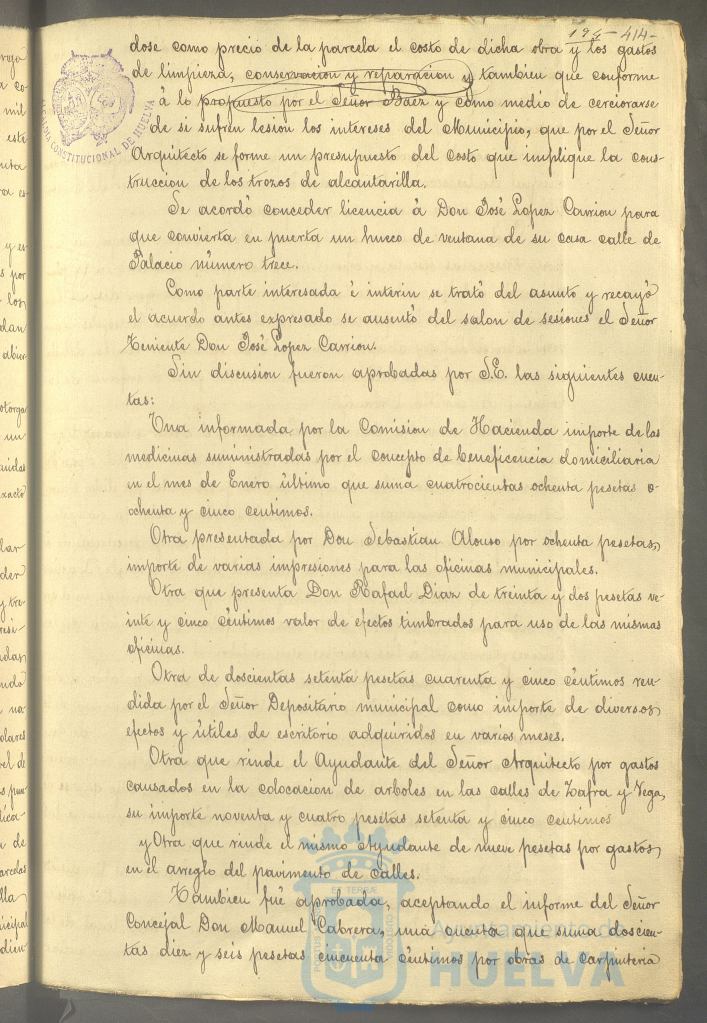 194 - 414-
dose como precio de la parcela el costo de dicha obra y los gastos
de limpieza, conservacion y reparacion y tambien que conforme
á lo propuesto por el Señor Báez y como medio de cerciorarse
de si sufren lesion los intereses del Municipio, que por el Señor
Arquitecto se forme un presupuesto del costo que implique la cons-
truccion de los trozos de alcantarilla.
Se acordó conceder licencia á Don José Lopez Carrion para
que convierta en puerta un hueco de ventana de su casa calle de
Palacio número trece.
Como parte interesada é interin se trató del asunto y recayó
el acuerdo antes expresado se ausentó del salon de sesiones el Señor
Teniente Don José Lopez Carrion.
Sin discusion fueron aprobadas por S.E. las siguientes cuen-
tas:
Una informada por la Comision de Hacienda importe de las
medicinas suministradas por el concepto de beneficencia domiciliaria
en el mes de Enero último que suma cuatrocientas ochenta pesetas o-
chenta y cinco centimos.
Otra presentada por Don Sebastian Alonso por ochenta pesetas,
importe de varias impresiones para las oficinas municipales.
Otra que presenta Don Rafael Diaz de treinta y dos pesetas ve-
inte y cinco céntimos valor de efectos timbrados para uso de las mismas
oficinas.
Otra de doscientas setenta pesetas cuarenta y cinco céntimos ren-
dida por el Señor Depositario municipal como importe de diversos
efectos y útiles de escritorio adquiridos en varios meses.
Otra que rinde el Ayudante del Señor Arquitecto por gastos
causados en la colocacion de arboles en las calles de Zafra y Vega,
su importe noventa y cuatro pesetas setenta y cinco centimos
y Otra que rinde el mismo Ayudante de nueve pesetas por gastos
en el arreglo del pavimento de calles.
Tambien fué aprobada, aceptando el informe del Señor
Concejal Don Manuel Cabrera, una cuenta que suma doscien-
tas diez y seis pesetas cincuenta céntimos por obras de carpinteria
CONSTITUCIONAL DE HUELVA
Ayuntamiento de
HUELVA